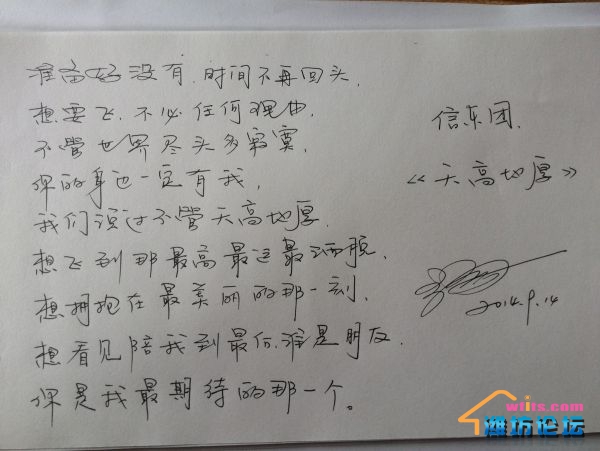 准备好没有,时间不再回头,
想要飞,不必任何理由,
不管世界尽头多寂寞,
你的身边一定有我,
我们说过不管天高地厚,
想飞到那最高最远最洒脱,
想拥抱在最美丽的那一刻,
想看见陪我到最后,谁是朋友,
你是我最期待的那一个。
信乐团,
《天高地厚》
2014.9.14
wfits.com
潍坊论坛